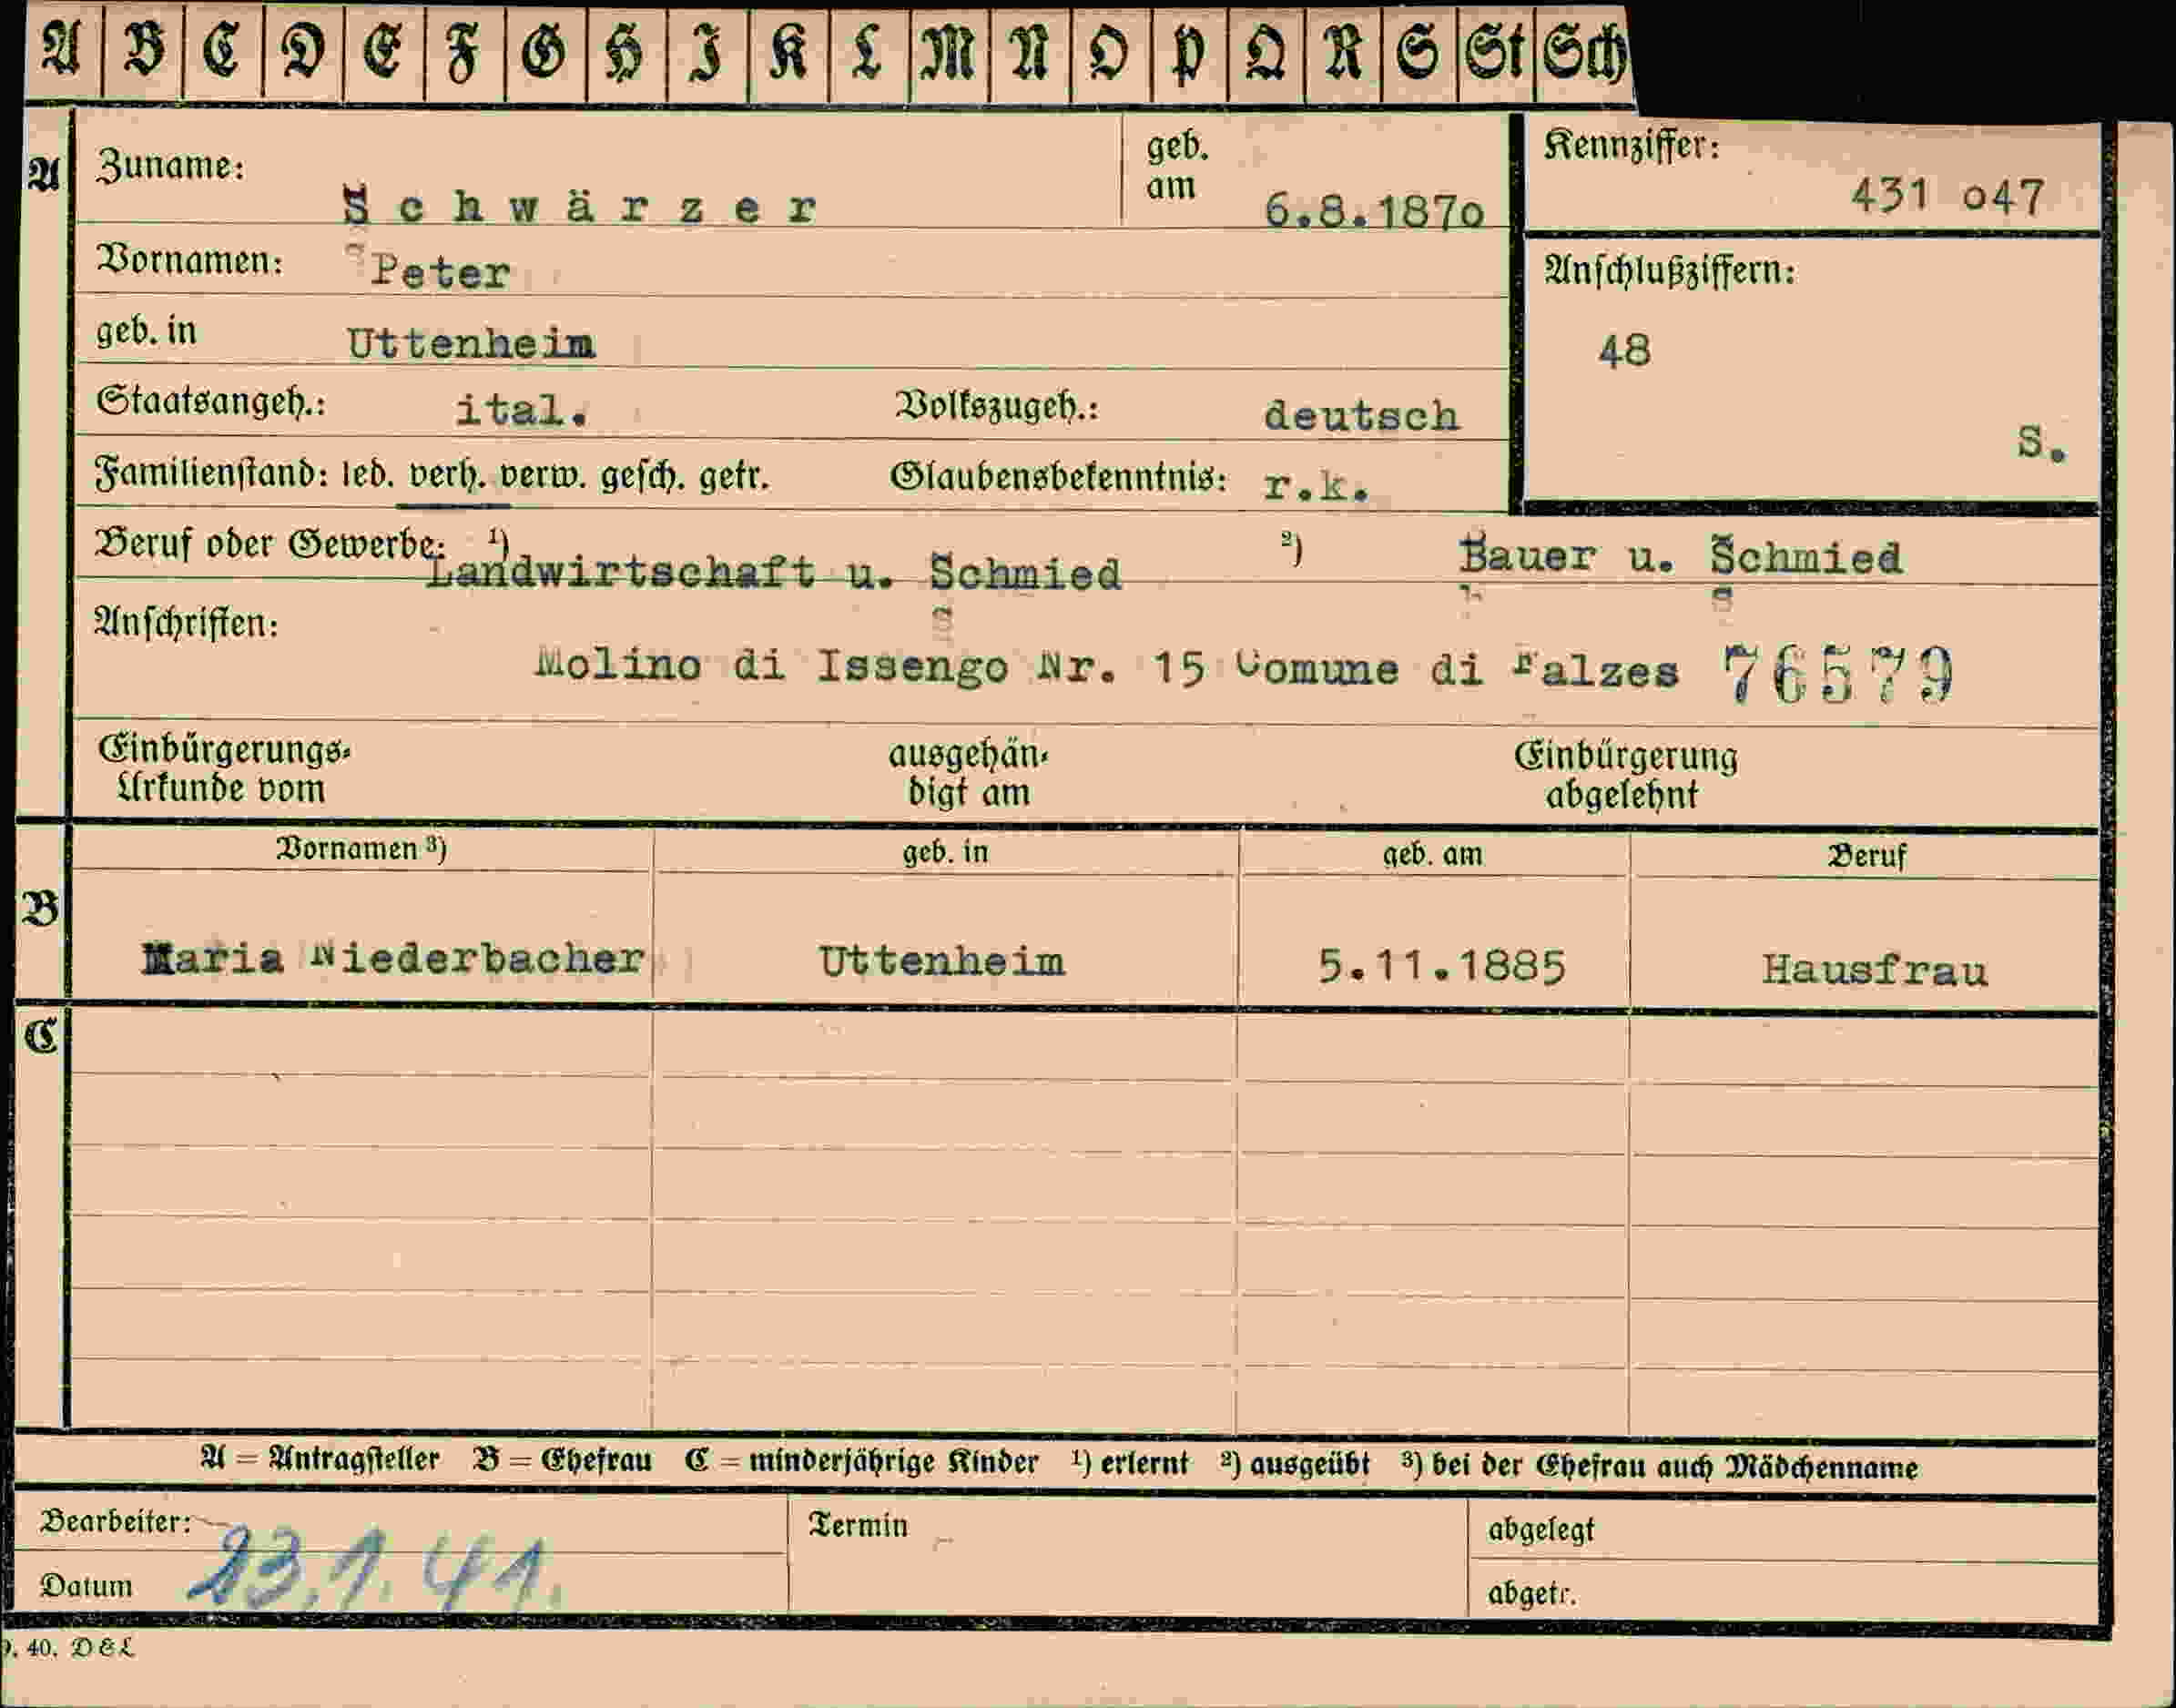 A B C D E F G H I K L M N O P Q R S St Sch
A Zuname: Schwärzer geb. am 6.8.1870 Kennziffer: 431 047
Vornamen: Peter Anschlußziffern:
geb. in Uttenheim 48
Staatsangeh.: ital. Volkszugeh.: deutsch S.
Familienstand: led. verh. verw. gesch. getr. Glaubensbekenntnis: r.k.
Beruf oder Gewerbe: 1) Landwirtschaft u. Schmied 2) Bauer u. Schmied
Anschriften:
Molino di Issengo Nr. 15 Comune di Falzes 76579
Einbürgerungs-Urkunde vom ausgehändigt am Einbürgerung abgelehnt
Vornamen 3) geb. in geb. am Beruf
B
Maria Niederbacher Uttenheim 5.11.1885 Hausfrau
C
A = Antragsteller B = Ehefrau C = minderjährige Kinder 1) erlernt 2) ausgeübt 3) bei der Ehefrau auch Mädchenname
Bearbeiter: Termin abgelegt
Datum 23.1.41. abgetr.
9. 40. D&L